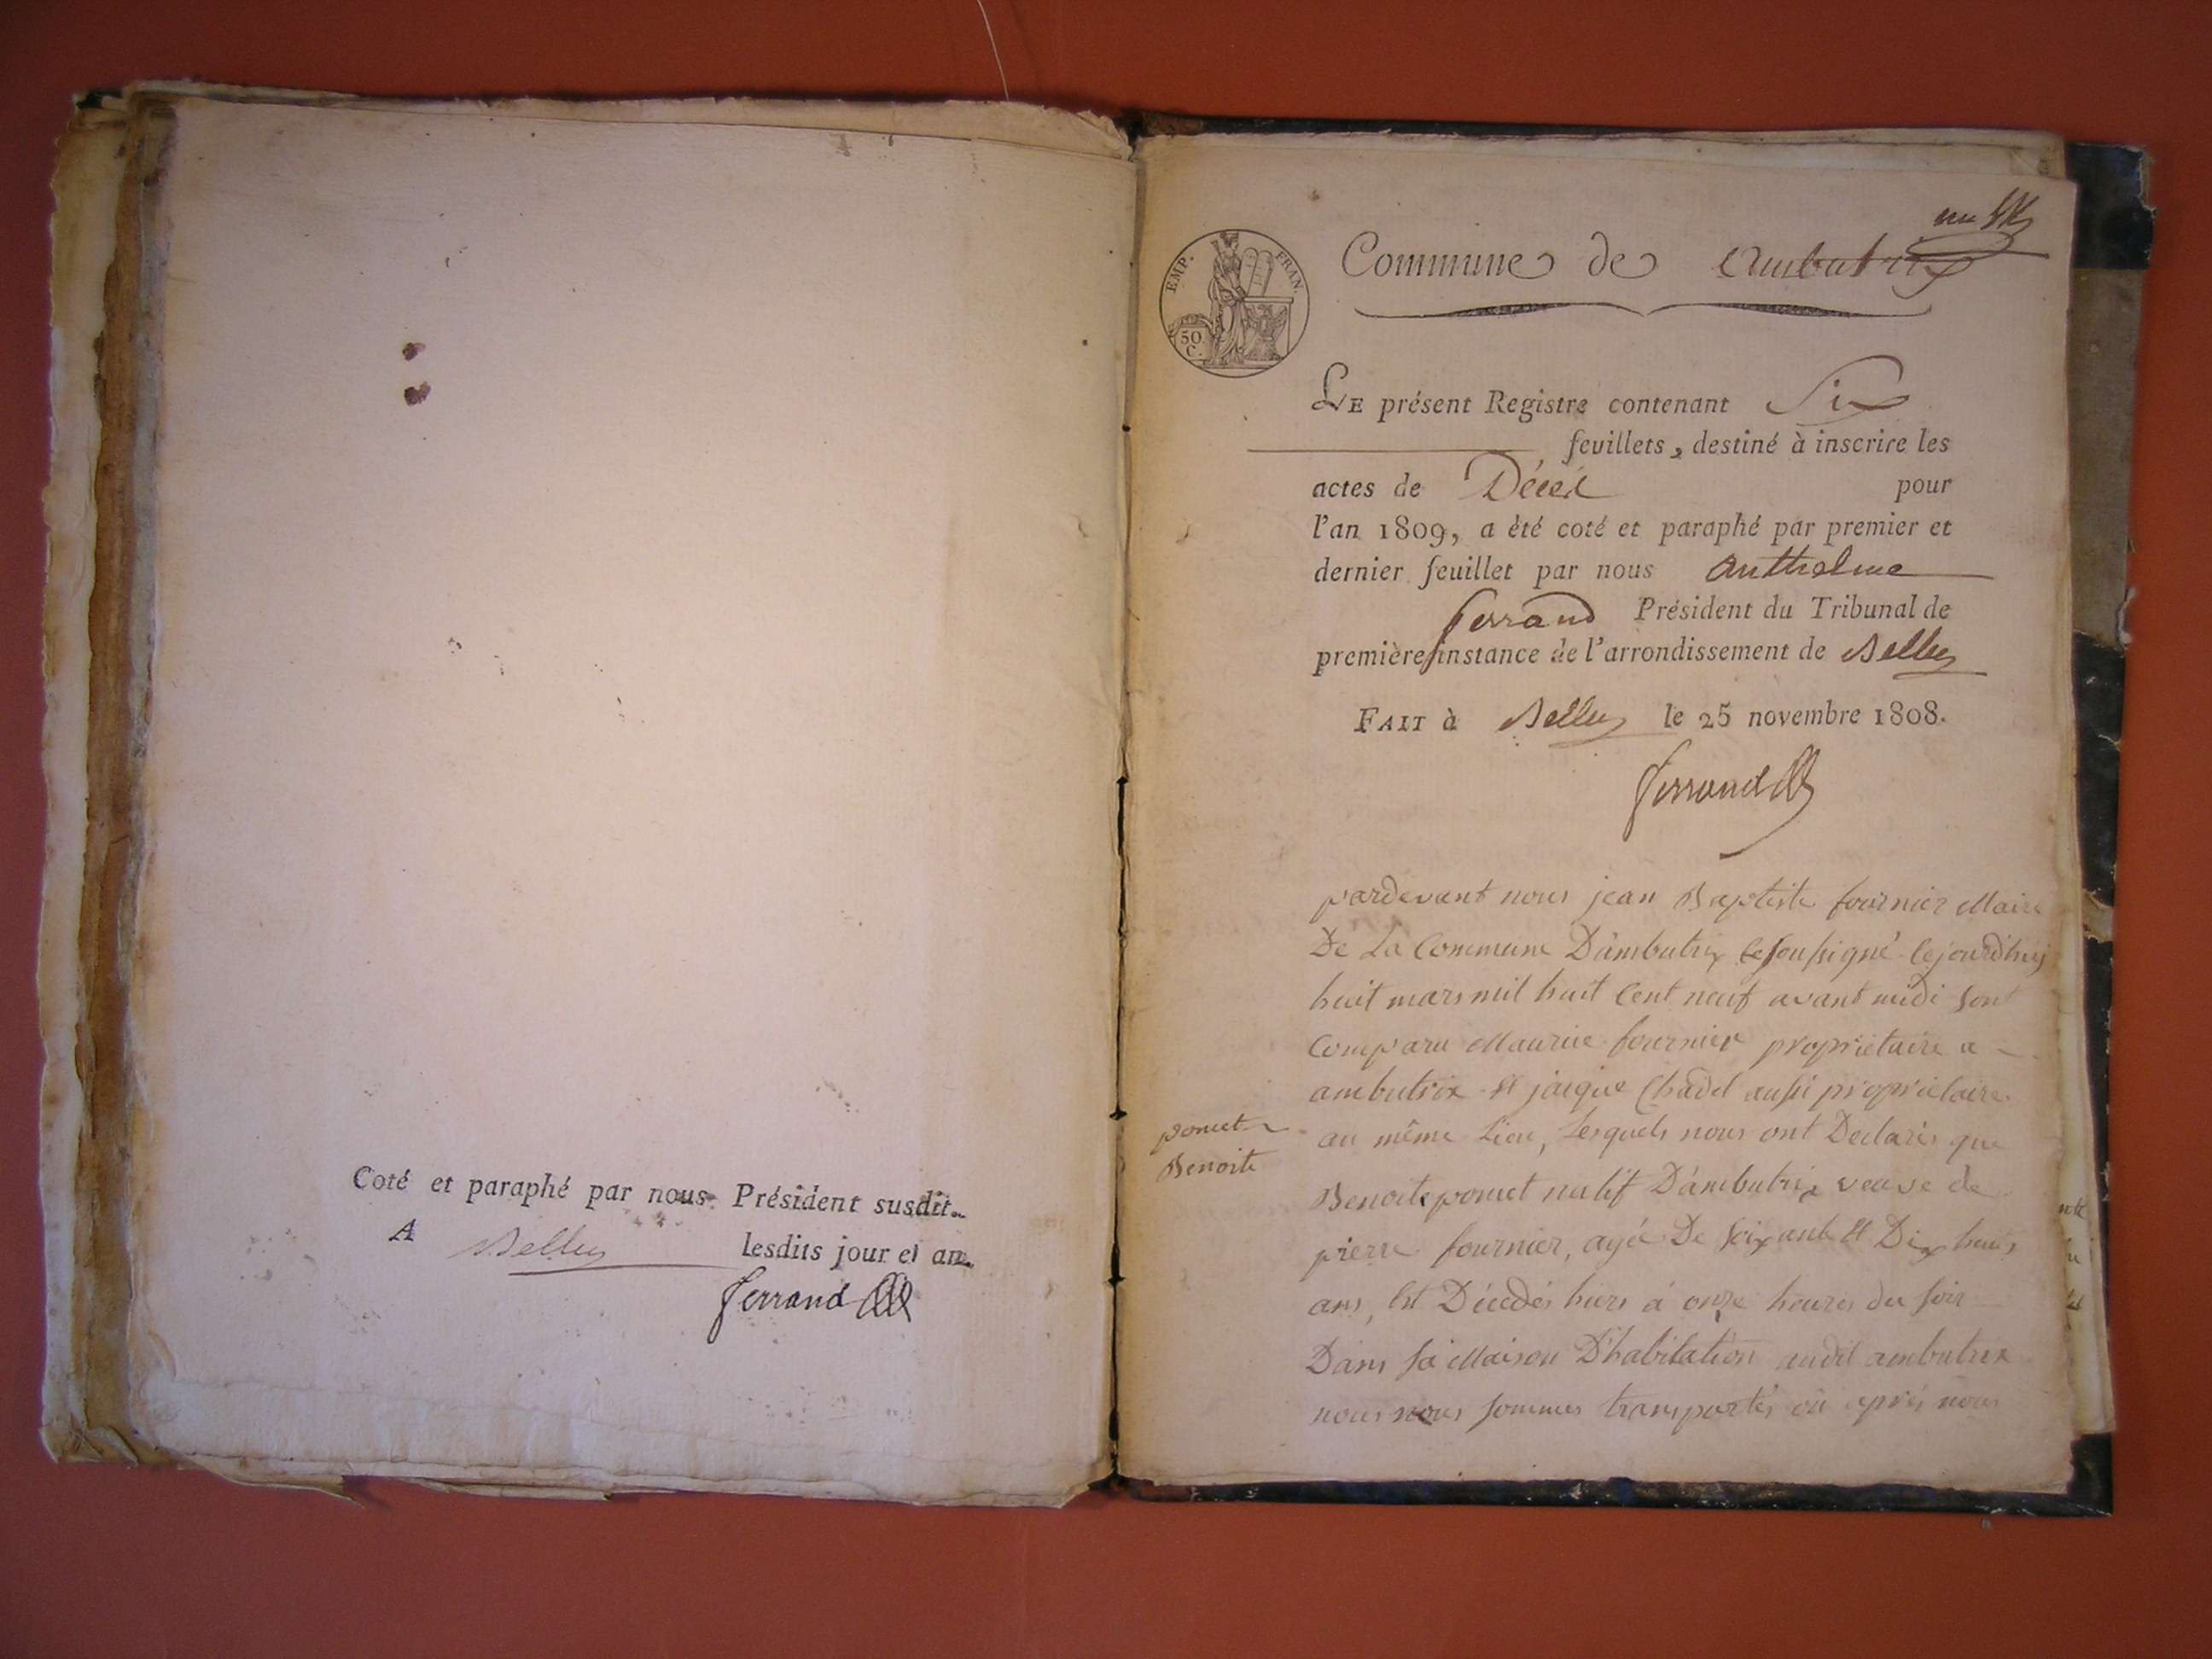 Coté et paraphé par nous Président susdit.
A Belley lesdits jour et an.
Ferrand
un
EMP. FRAN.
50
C.
Commune de Ambutrix
LE présent Registre contenant Six
feuillets, destiné à inscrire les
actes de Décès pour
l'an 1809, a été coté et paraphé par premier et
dernier feuillet par nous Anthelme
ferrand Président du Tribunal de
première instance de l'arrondissement de Belley
FAIT à Belley le 25 novembre 1808.
ferrand
pardevant nous jean Baptiste fournier Maire
De La Commune D'ambutrix soussigné Cejourd'huy
huit mars mil huit Cent neuf avant midi sont
Comparu Maurice fournier proprietaire a
ambutrix Et jacque Chadel aussi proprietaire
au même Lieu, Lesquels nous ont Declarés que
ponset
Benoite
Benoite ponset natif D'ambutrix veuve de
pierre fournier, agé De soixante Et Dix huit
ans, Est Décedés hiers á onze heures du soir
Dans sa Maison D'habitation audit ambutrix
nous nous sommes transportés où aprés nous